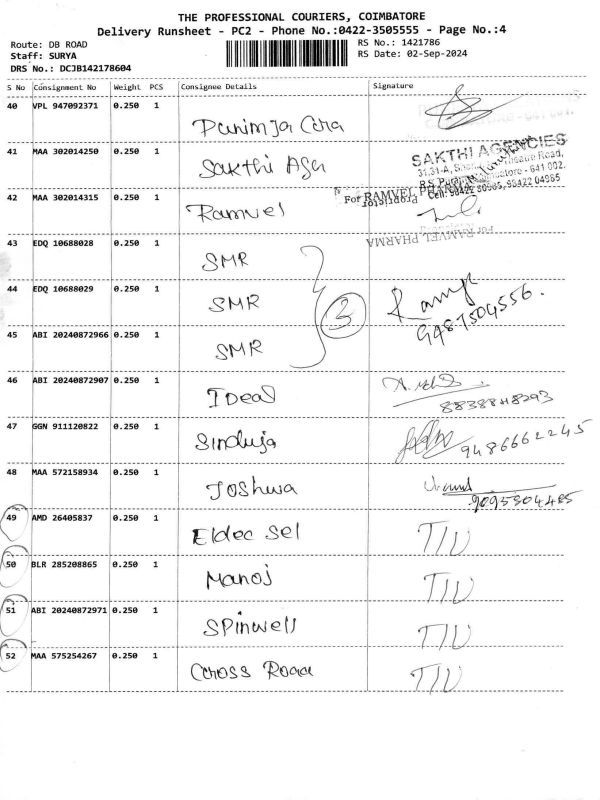 THE PROFESSIONAL COURIERS, COIMBATORE
Delivery Runsheet - PC2 - Phone No.:0422-3505555 - Page No.:4
Route: DB ROAD
Staff: SURYA
DRS No.: DCJB142178604
RS No.: 1421786
RS Date: 02-Sep-2024
S No Consignment No Weight PCS Consignee Details Signature
40 VPL 947092371 0.250 1
41 MAA 302014250 0.250 1 Sakthi Age
SAKTHI AGENCIES
42 MAA 302014315 0.250 1 Ramvel
For RAMVEL PHARMA
Proprietor
For RAMVEL PHARMA
43 EDQ 10688028 0.250 1 SMR
44 EDQ 10688029 0.250 1 SMR 3
9487504556.
45 ABI 20240872966 0.250 1 SMR
46 ABI 20240872907 0.250 1 Ideal
47 GGN 911120822 0.250 1 Sinduja 9486662245
48 MAA 572158934 0.250 1 Joshwa
9095304485
49 AMD 26405837 0.250 1 Eldec sel T/U
50 BLR 285208865 0.250 1 Manoj T/U
51 ABI 20240872971 0.250 1 Spinwell T/U
52 MAA 575254267 0.250 1 Cross Road T/U